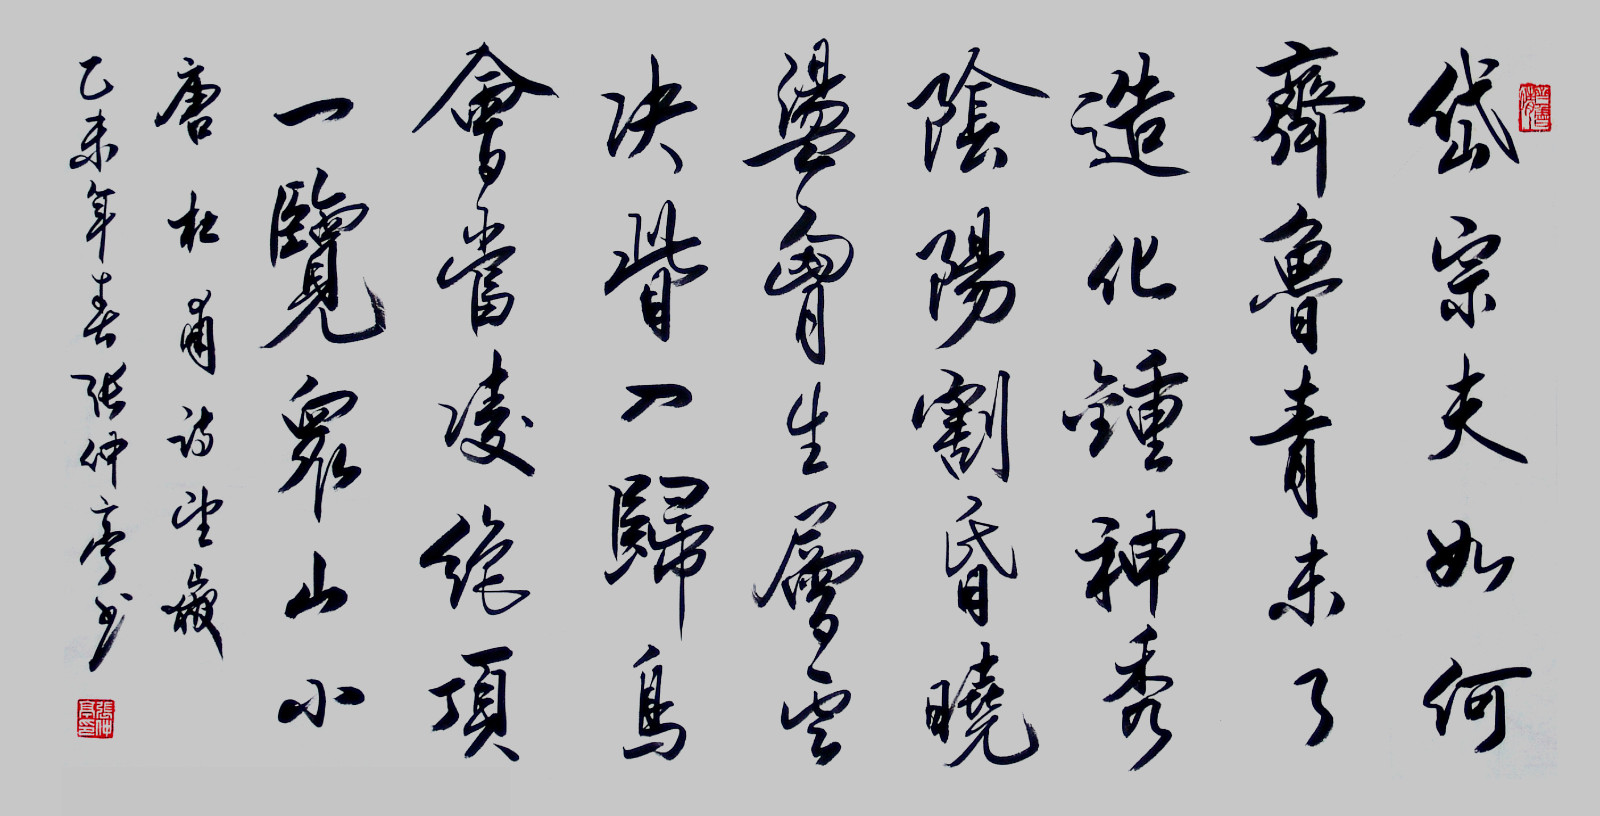 岱宗夫如何
齊魯青未了
造化鍾神秀
陰陽割昏曉
盪胷生層雲
决眥入歸鳥
會當凌絕頂
一覽眾山小
唐杜甫詩望嶽
乙未年春張仲亭書
張仲亭印